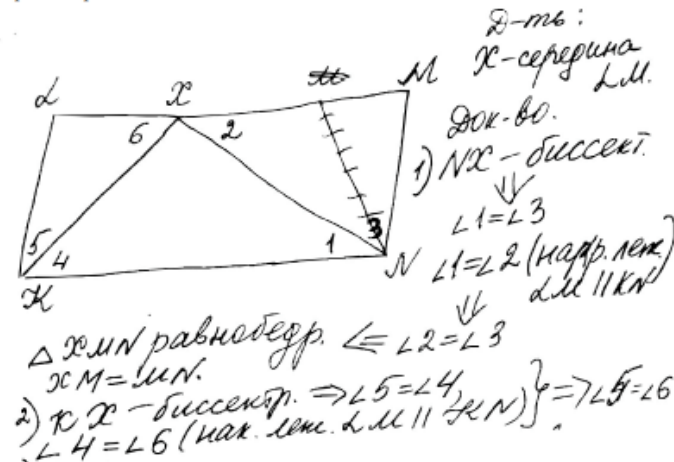 Д-ть:
X-середина
LM.
Док-во.
1) NX - биссект.
⇓
∠1=∠3
∠1=∠2 (накр. леж.
LM || KN)
⇓
△ XMN равнобедр. <= ∠2=∠3
XM=MN.
2) KX - биссектр. => ∠5=∠4,
∠4=∠6 (нак. леж. LM || KN) } => ∠5=∠6
L X M
6 2
5 4 1 3
K N